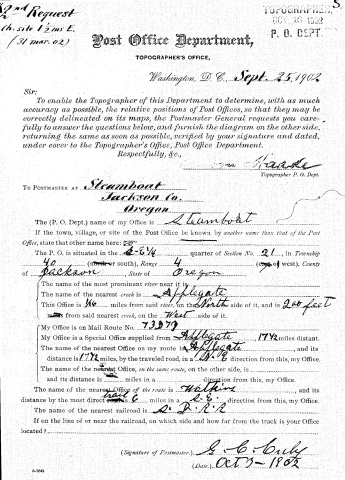 2nd Request
Ch. site 1½ m E.
(31 mar. 02)
TOPOGRAPHER,
OCT 10 1902
P. O. DEPT.
Post Office Department,
TOPOGRAPHER'S OFFICE,
Washington, D. C., Sept. 25, 1902
Sir:
To enable the Topographer of this Department to determine, with as much
accuracy as possible, the relative positions of Post Offices, so that they may be
correctly delineated on its maps, the Postmaster General requests you care-
fully to answer the questions below, and furnish the diagram on the other side,
returning the same as soon as possible, verified by your signature and dated,
under cover to the Topographer's Office, Post Office Department.
Respectfully, &c.,
Topographer P. O. Dept.
TO POSTMASTER AT Steamboat
Jackson Co.
Oregon
The (P. O. Dept.) name of my Office is Steamboat
If the town, village, or site of the Post Office be known by another name than that of the Post
Office, state that other name here:
The P. O. is situated in the S-E¼ quarter of Section No. 21, in Township
40 south, Range 4 west, County
of Jackson, State of Oregon
The name of the most prominent river near it is
The name of the nearest creek is Applegate
This Office is miles from said river, on the North side of it, and is 200 feet
from said nearest creek, on the West side of it.
My Office is on Mail Route No. 73279
My Office is a Special Office supplied from Applegate 17½ miles distant.
The name of the nearest Office on my route is Applegate, and its
distance is 17½ miles, by the traveled road, in a N. E. direction from this, my Office.
The name of the nearest Office, on the same route, on the other side, is
and its distance is miles in a direction from this, my Office.
The name of the nearest Office off the route is Watkins, and its
distance by the most direct trail 6 miles in a S. E. direction from this, my Office.
The name of the nearest railroad is S. P. R R
If on the line of or near the railroad, on which side and how far from the track is your Office
located?
(Signature of Postmaster.)
(Date.) Oct 3 - 1902